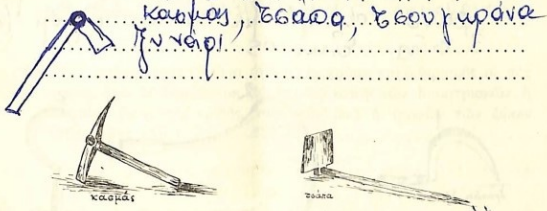 κασμάς, τσάπα, τσουγκράνα
ξυνάρι
κασμάς
τσάπα